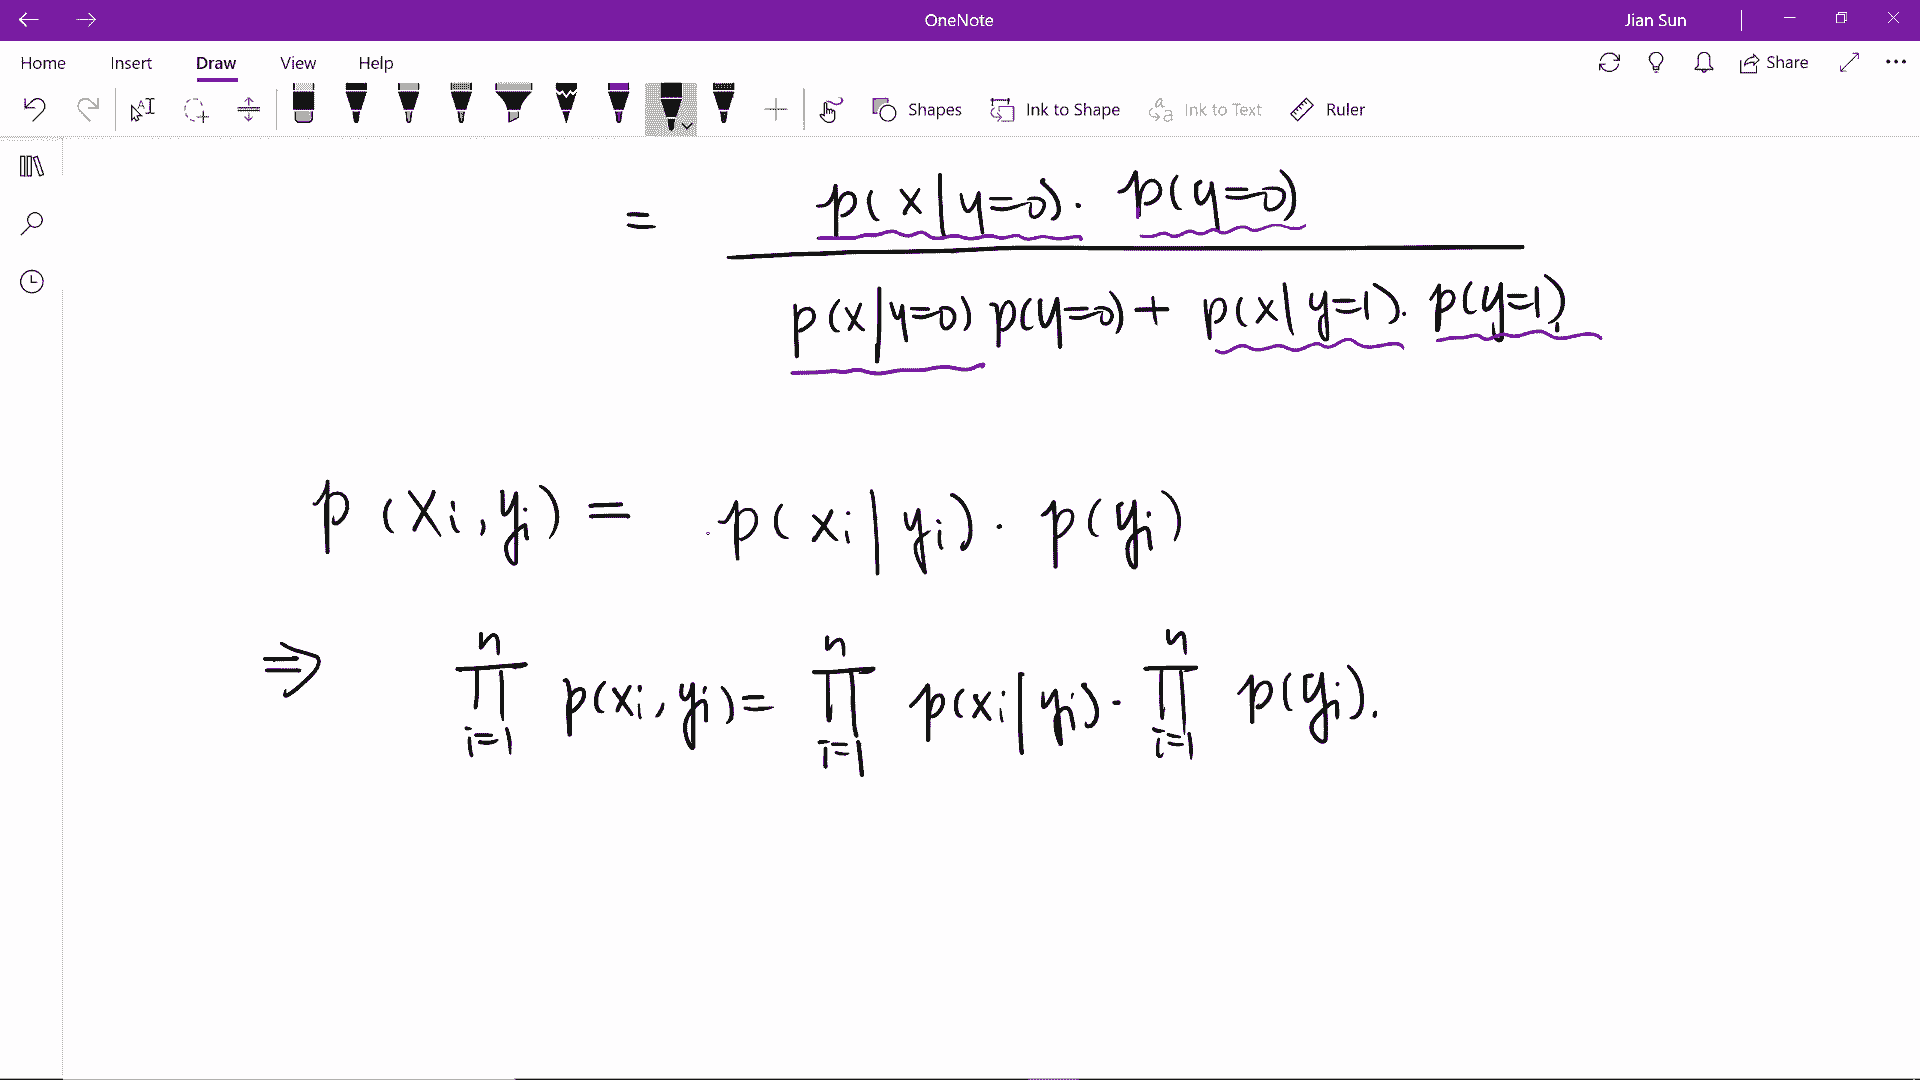 OneNote Jian Sun
Home Insert Draw View Help Share
Shapes Ink to Shape Ink to Text Ruler
= p(x|y=0). p(y=0)
p(x|y=0) p(y=0) + p(x|y=1). p(y=1)
p(xi,yi) = p(xi|yi). p(yi)
⇒ n∏i=1 p(xi,yi) = n∏i=1 p(xi|yi). n∏i=1 p(yi).